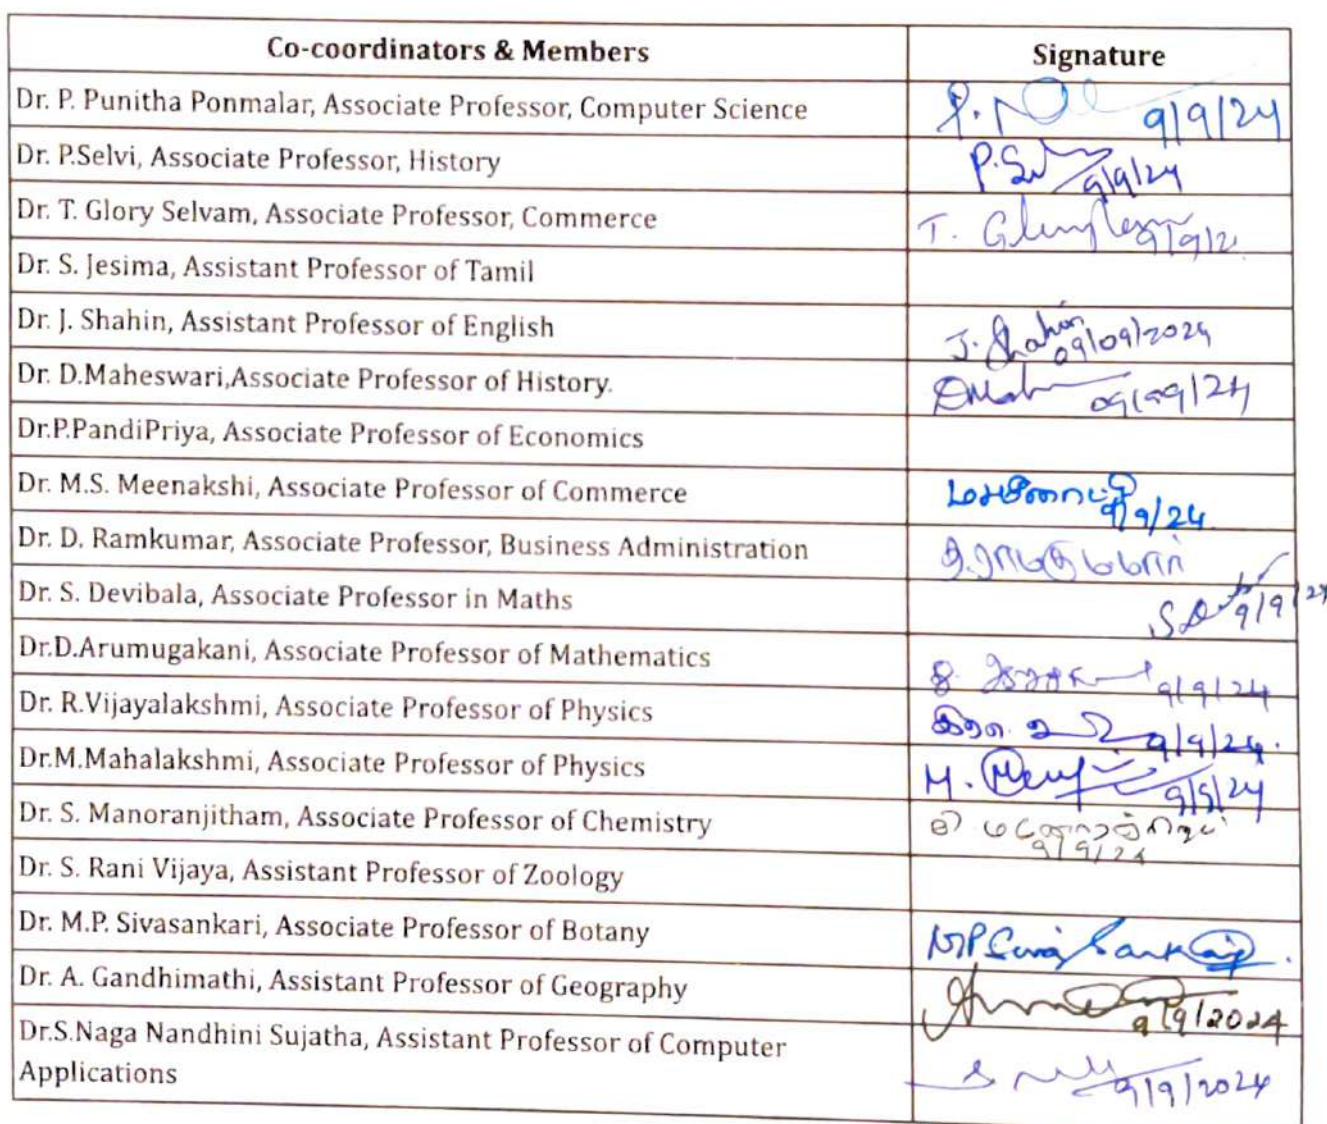 Co-coordinators & Members Signature
Dr. P. Punitha Ponmalar, Associate Professor, Computer Science 9/9/24
Dr. P.Selvi, Associate Professor, History P. 9/9/24
Dr. T. Glory Selvam, Associate Professor, Commerce T. 9/9/2
Dr. S. Jesima, Assistant Professor of Tamil
Dr. J. Shahin, Assistant Professor of English J. Shahin 09/09/2024
Dr. D.Maheswari,Associate Professor of History. 09/09/24
Dr.P.PandiPriya, Associate Professor of Economics
Dr. M.S. Meenakshi, Associate Professor of Commerce 9/9/24
Dr. D. Ramkumar, Associate Professor, Business Administration
Dr. S. Devibala, Associate Professor in Maths 9/9/24
Dr.D.Arumugakani, Associate Professor of Mathematics 9/9/24
Dr. R.Vijayalakshmi, Associate Professor of Physics 9/9/24.
Dr.M.Mahalakshmi, Associate Professor of Physics M. 9/9/24
Dr. S. Manoranjitham, Associate Professor of Chemistry 9/9/24
Dr. S. Rani Vijaya, Assistant Professor of Zoology
Dr. M.P. Sivasankari, Associate Professor of Botany
Dr. A. Gandhimathi, Assistant Professor of Geography 9/9/2024
Dr.S.Naga Nandhini Sujatha, Assistant Professor of Computer
Applications 9/9/2024